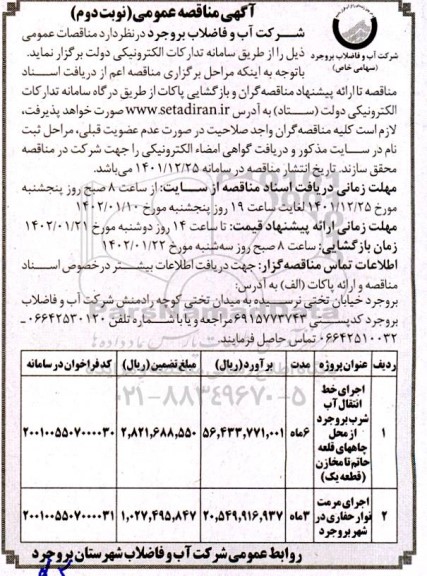 آگهی مناقصه عمومی (نوبت دوم)
شرکت آب و فاضلاب بروجرد
(سهامی خاص)
شرکت آب و فاضلاب بروجرد در نظر دارد مناقصات عمومی
ذیل را از طریق سامانه تدارکات الکترونیکی دولت برگزار نماید.
باتوجه به اینکه مراحل برگزاری مناقصه اعم از دریافت اسناد
مناقصه تا ارائه پیشنهاد مناقصه گران و بازگشایی پاکات از طریق درگاه سامانه تدارکات
الکترونیکی دولت (ستاد) به آدرس www.setadiran.ir صورت خواهد پذیرفت،
لازم است کلیه مناقصه گران واجد صلاحیت در صورت عدم عضویت قبلی، مراحل ثبت
نام در سایت مذکور و دریافت گواهی امضاء الکترونیکی را جهت شرکت در مناقصه
محقق سازند. تاریخ انتشار مناقصه در سامانه ۱۴۰۱/۱۲/۲۵ می‌باشد.
مهلت زمانی دریافت اسناد مناقصه از سایت: از ساعت ۸ صبح روز پنجشنبه
مورخ ۱۴۰۱/۱۲/۲۵ لغایت ساعت ۱۹ روز پنجشنبه مورخ ۱۴۰۲/۰۱/۱۰
مهلت زمانی ارائه پیشنهاد قیمت: تا ساعت ۱۴ روز دوشنبه مورخ ۱۴۰۲/۰۱/۲۱
زمان بازگشایی: ساعت ۸ صبح روز سه‌شنبه مورخ ۱۴۰۲/۰۱/۲۲
اطلاعات تماس مناقصه‌گزار: جهت دریافت اطلاعات بیشتر در خصوص اسناد
مناقصه و ارائه پاکات (الف) به آدرس:
بروجرد خیابان تختی نرسیده به میدان تختی کوچه رادمنش شرکت آب و فاضلاب
بروجرد کدپستی ۶۹۱۵۷۷۳۷۴۳ مراجعه و یا با شماره تلفن ۰۶۶۴۲۵۳۰۱۲۰-
۰۶۶۴۲۵۱۰۰۳۲ تماس حاصل فرمایند.
۰۲۱-۸۸۳۴۹۶۷۰-۵
ردیف عنوان پروژه مدت برآورد (ریال) مبلغ تضمین (ریال) کد فراخوان در سامانه
۱ اجرای خط انتقال آب شرب بروجرد از محل چاههای قلعه حاتم تا مخازن (قطعه یک) ۶ماه ۵۶,۴۳۳,۷۷۱,۰۰۱ ۲,۸۲۱,۶۸۸,۵۵۰ ۲۰۰۱۰۰۵۵۰۷۰۰۰۰۳۰
۲ اجرای مرمت نوار حفاری در شهر بروجرد ۳ماه ۲۰,۵۴۹,۹۱۶,۹۳۷ ۱,۰۲۷,۴۹۵,۸۴۷ ۲۰۰۱۰۰۵۵۰۷۰۰۰۰۳۱
روابط عمومی شرکت آب و فاضلاب شهرستان بروجرد